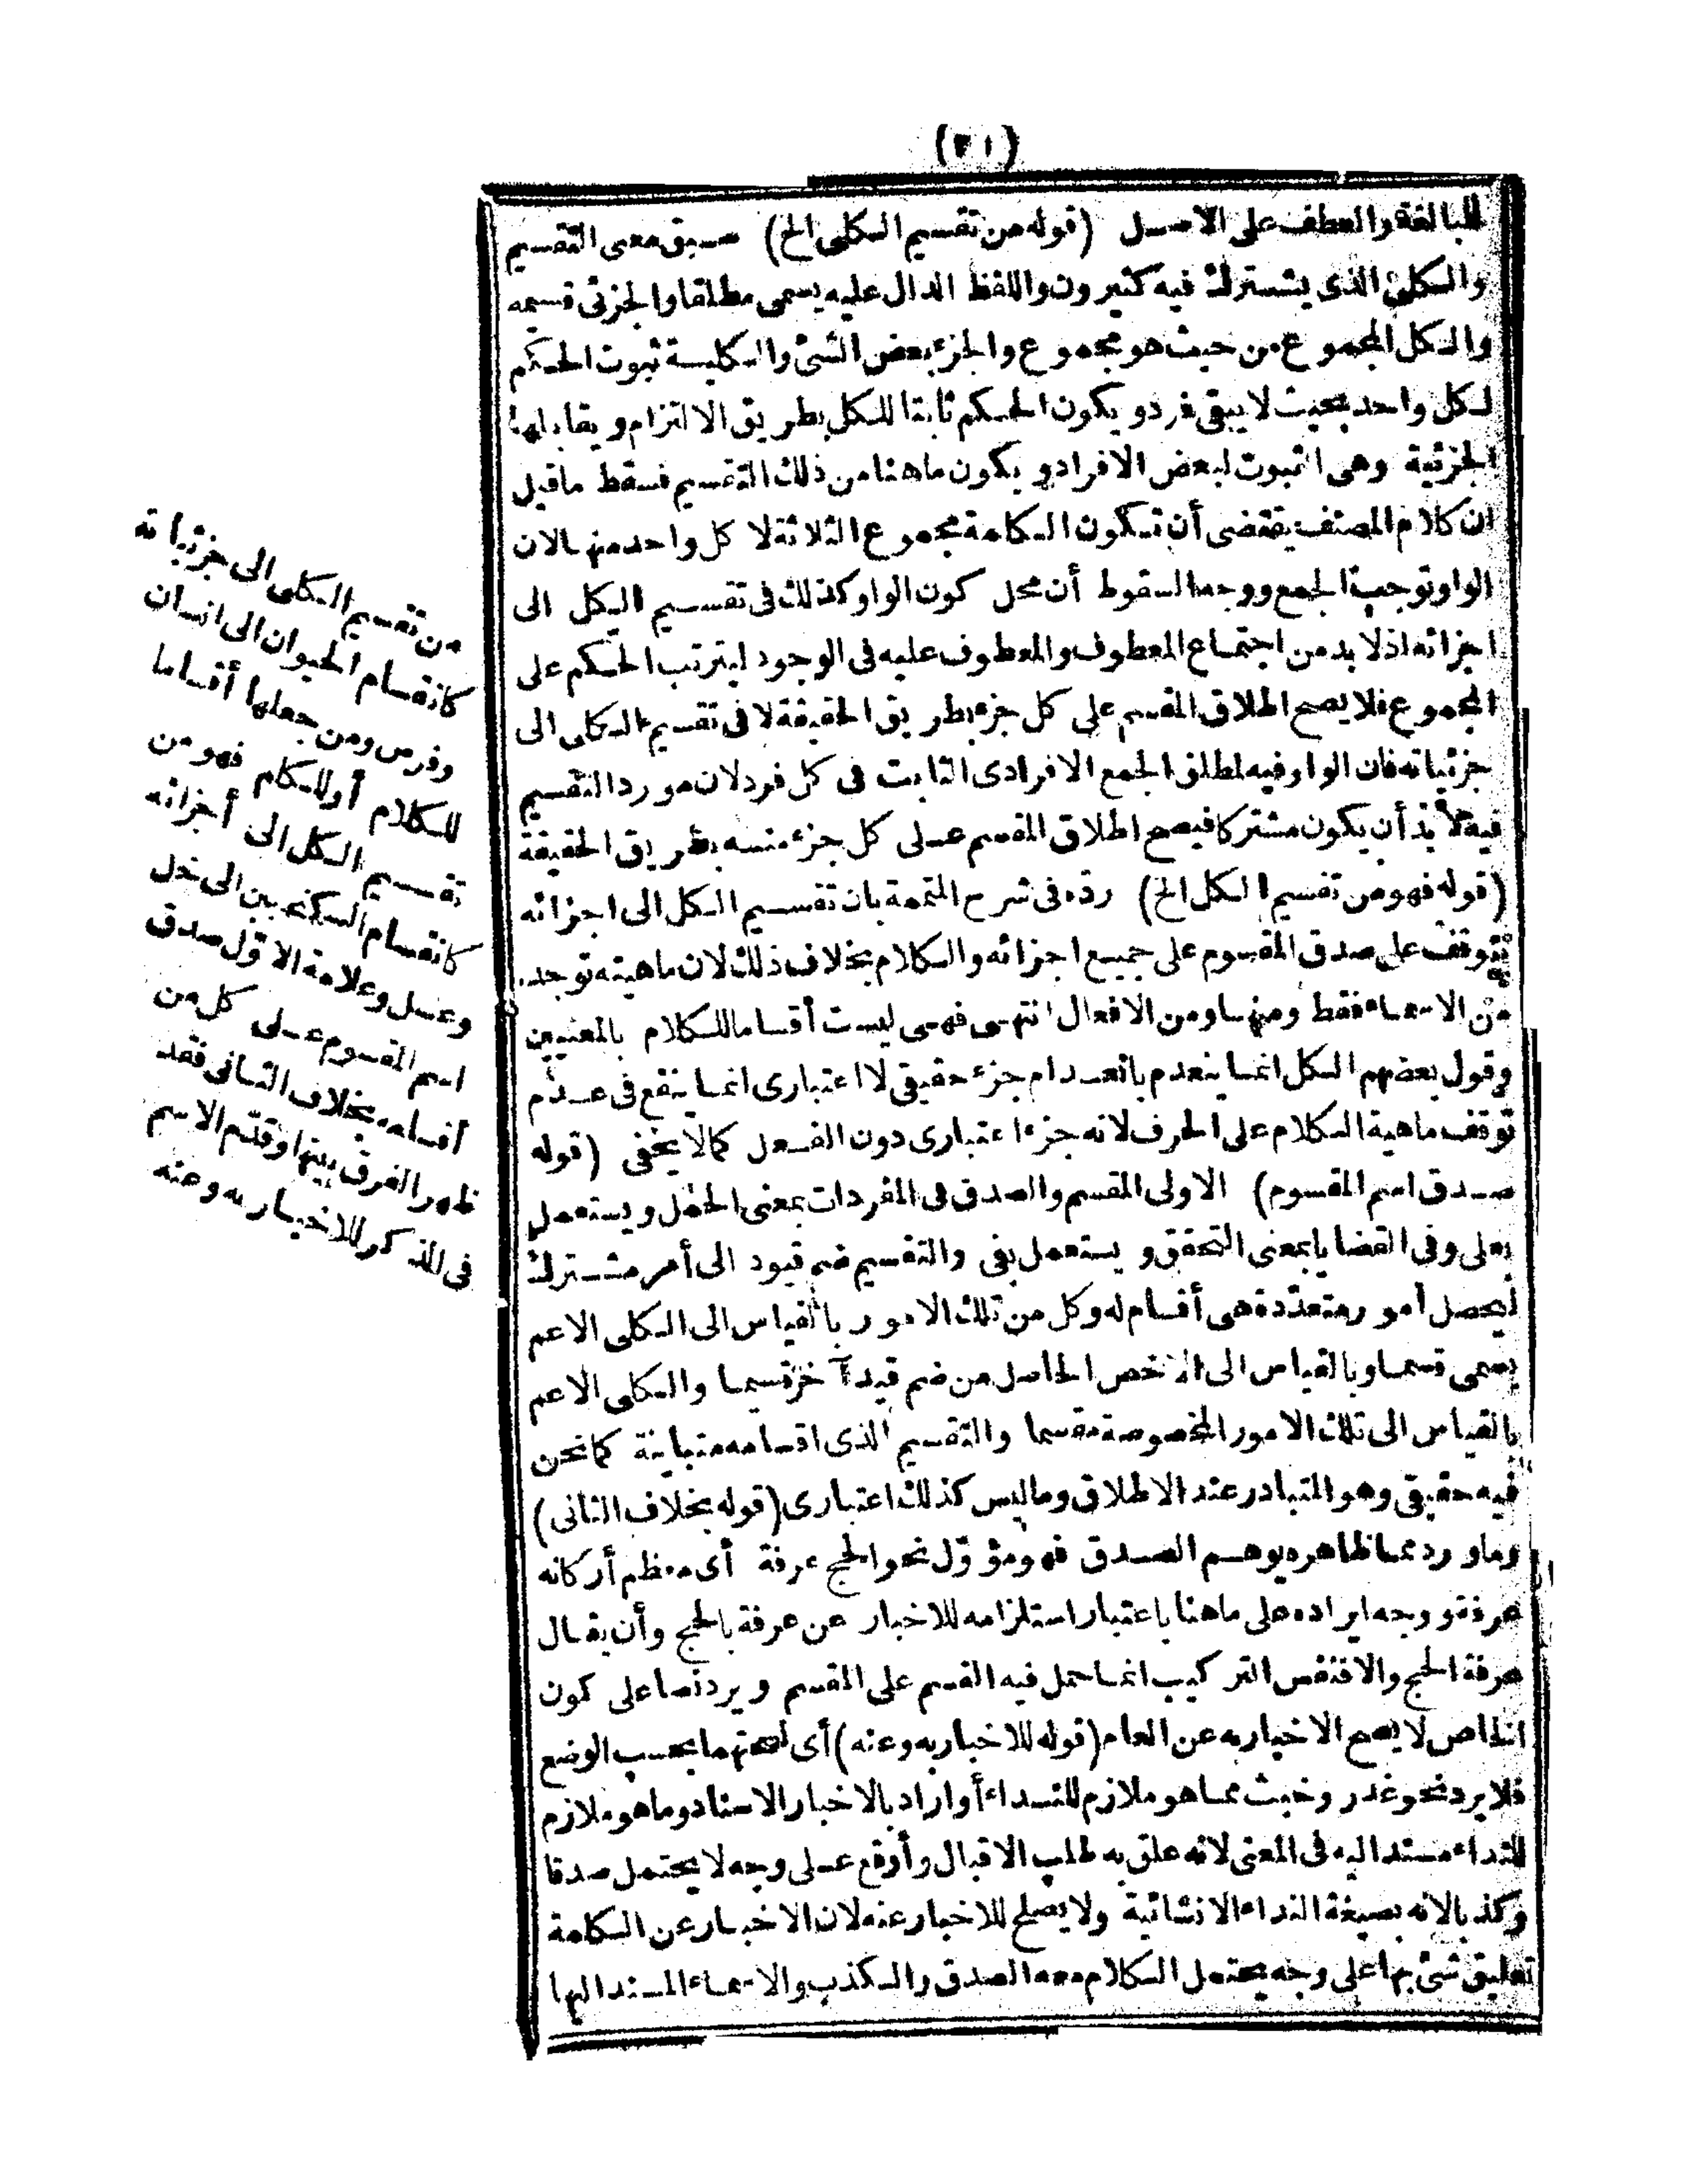 (٢١)
للمبالغة والعطف على الاصل (قوله من تقسيم الكلى الخ) سبق معنى التقسيم
والكلى الذى يشترك فيه كثيرون واللفظ الدال عليه يسمى مطلقا والجزئى قسيمه
والكل المجموع من حيث هو مجموع والجزء بعض الشئ والكلية ثبوت الحكم
لكل واحد بحيث لا يبقى فرد ويكون الحكم ثابتا للكل بطريق الالتزام ويقابلها
الجزئية وهى الثبوت لبعض الافراد ويكون ما هنا من ذلك التقسيم فسقط ما قيل
ان كلام المصنف يقتضى أن تكون الكلمة مجموع الثلاثة لا كل واحد منها لان
الواو توجب الجمع ووجه السقوط أن محل كون الواو كذلك فى تقسيم الكل الى
اجزائه اذ لا بد من اجتماع المعطوف والمعطوف عليه فى الوجود ليترتب الحكم على
المجموع فلا يصح اطلاق المقسم على كل جزء بطريق الحقيقة لا فى تقسيم الكلى الى
جزئياته فان الواو فيه لمطلق الجمع الافرادى الثابت فى كل فرد لان مورد التقسيم
فيه لا بد أن يكون مشتركا فيصح اطلاق المقسم على كل جزء منه بطريق الحقيقة
(قوله فهو من تقسيم الكل الخ) ردّه فى شرح المتممة بان تقسيم الكل الى اجزائه
يتوقف على صدق المقسوم على جميع اجزائه والكلام بخلاف ذلك لان ماهيته توجد
من الاسماء فقط ومنها ومن الافعال انتهى فهى ليست أقساما للكلام بالمعنيين
وقول بعضهم الكل انما ينعدم بانعدام جزء حقيقى لا اعتبارى انما ينفع فى عدم
توقف ماهية الكلام على الحرف لانه جزء اعتبارى دون الفعل كما لا يخفى (قوله
صدق اسم المقسوم) الاولى المقسم والصدق فى المفردات بمعنى الحمل ويستعمل
بعلى وفى القضايا بمعنى التحقق ويستعمل بفى والتقسيم ضم قيود الى أمر مشترك
ليحصل أمور متعدّدة هى أقسام له وكل من تلك الامور بالقياس الى الكلى الاعم
يسمى قسما وبالقياس الى الاخص الحاصل من ضم قيد آخر قسيما والكلى الاعم
بالقياس الى تلك الامور المخصوصة مقسما والتقسيم الذى اقسامه متباينة كما نحن
فيه حقيقى وهو المتبادر عند الاطلاق وما ليس كذلك اعتبارى (قوله بخلاف الثانى)
وما ورد مما ظاهره يوهم الصدق فهو مؤوّل نحو الحج عرفة أى معظم أركانه
عرفة ووجه ايراده على ما هنا باعتبار استلزامه للاخبار عن عرفة بالحج وأن يقال
عرفة الحج والا فنفس التركيب انما حمل فيه القسم على المقسم ويرد نصا على كون
الخاص لا يصح الاخبار به عن العام (قوله للاخبار به وعنه) أى لصحتهما بحسب الوضع
فلا يرد نحو غدر وخبث مما هو ملازم للنداء أو اراد بالاخبار الاسناد وما هو ملازم
للنداء مسند اليه فى المعنى لانه علق به طلب الاقبال وأوقع على وجه لا يحتمل صدقا
وكذبا لانه بصيغة النداء الانشائية ولا يصلح للاخبار عنه لان الاخبار عن الكلمة
تعليق شئ بها على وجه يحتمل الكلام معه الصدق والكذب والاسماء المسند اليها
من تقسيم الكلى الى جزئياته
كانقسام الحيوان الى انسان
وفرس ومن جعلها أقساما
للكلام أو للكلم فهو من
تقسيم الكل الى أجزائه
كانقسام السكنجبين الى خل
وعسل وعلامة الاوّل صدق
اسم المقسوم على كل من
أقسامه بخلاف الثانى فقد
ظهر الفرق بينهما وقدّم الاسم
فى الذكر للاخبار به وعنه